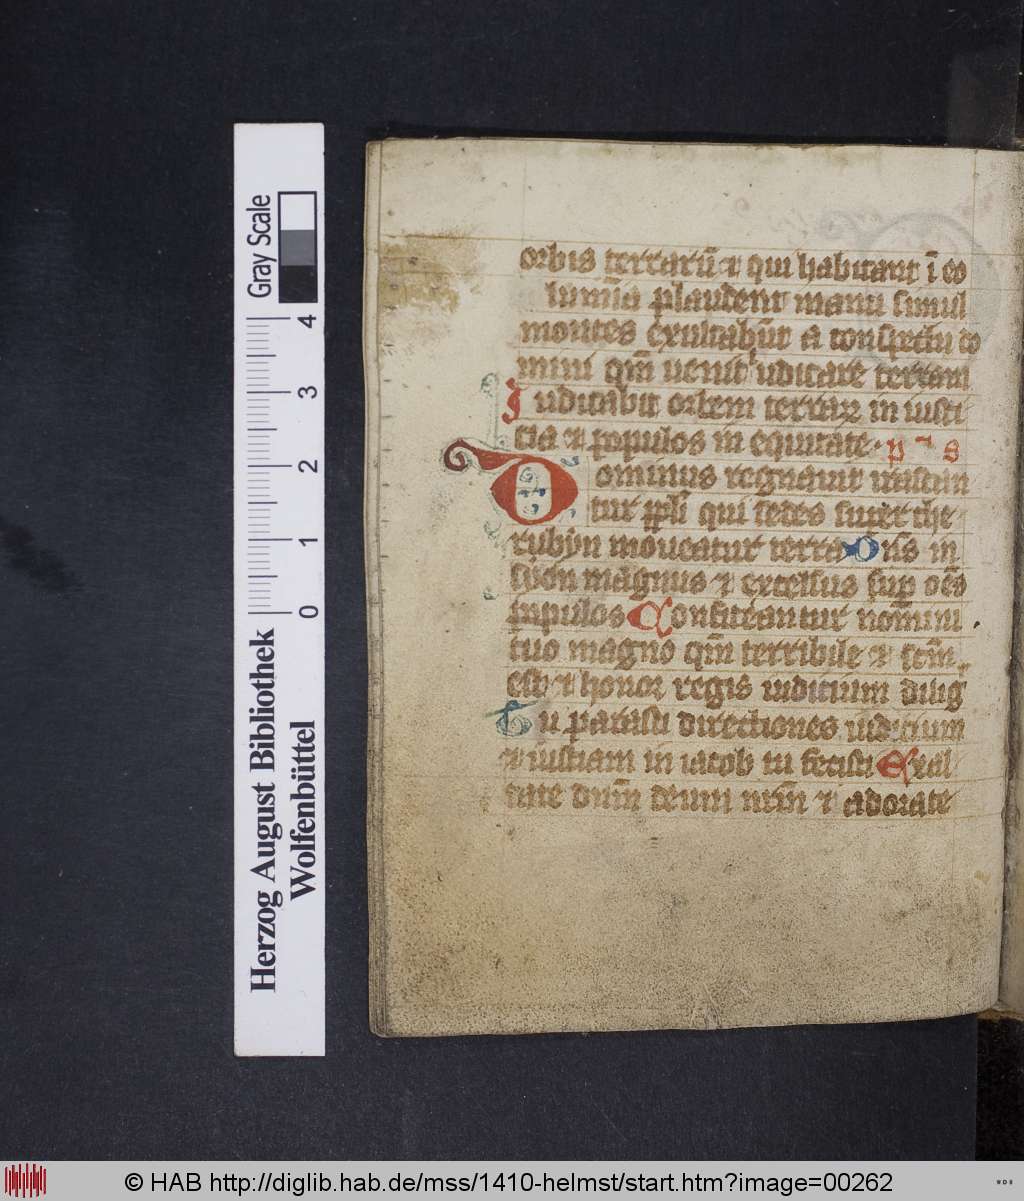 orbis terrarū ⁊ qui habitant ī eo
lumīa plaudent manu simul
montes exultabūt a conspectu do
mini qm̄ uenit iudicare terram
Iudicabit orbem terrarꝝ in iusti
cia ⁊ populos in equitate. p s
Dominus regnauit irascan
tur ppli qui sedes super che
rubyn moueatur terra Dn̄s in
syon magnus ⁊ excelsus sup oēs
populos Confiteantur nomini
tuo magno qm̄ terribile ⁊ scm̄
est ⁊ honor regis iudicium dilig
Tu parasti directiones iudicium
⁊ iusticiam in iacob tu fecisti Exal
tate dnm̄ deum nrm̄ ⁊ adorate
Gray Scale
0 1 2 3 4
Herzog August Bibliothek
Wolfenbüttel
© HAB http://diglib.hab.de/mss/1410-helmst/start.htm?image=00262